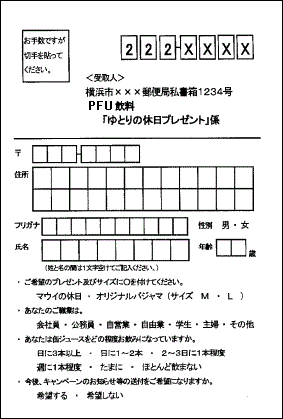 お手数ですが
切手を貼って
ください。
222-XXXX
＜受取人＞
横浜市×××郵便局私書箱1234号
PFU飲料
「ゆとりの休日プレゼント」係
〒
住所
フリガナ
性別 男・女
氏名
年齢 歳
（姓と名の間は1文字空けてご記入ください。）
・ご希望のプレゼント及びサイズに○を付けてください。
マウイの休日 ・ オリジナルパジャマ（サイズ M ・ L ）
・あなたのご職業は。
会社員 ・ 公務員 ・ 自営業 ・ 自由業 ・ 学生 ・ 主婦 ・ その他
・あなたは缶ジュースをどの程度お飲みになっていますか。
日に3本以上 ・ 日に1～2本 ・ 2～3日に1本程度
週に1本程度 ・ たまに ・ ほとんど飲まない
・今後、キャンペーンのお知らせ等の送付をご希望になりますか。
希望する ・ 希望しない